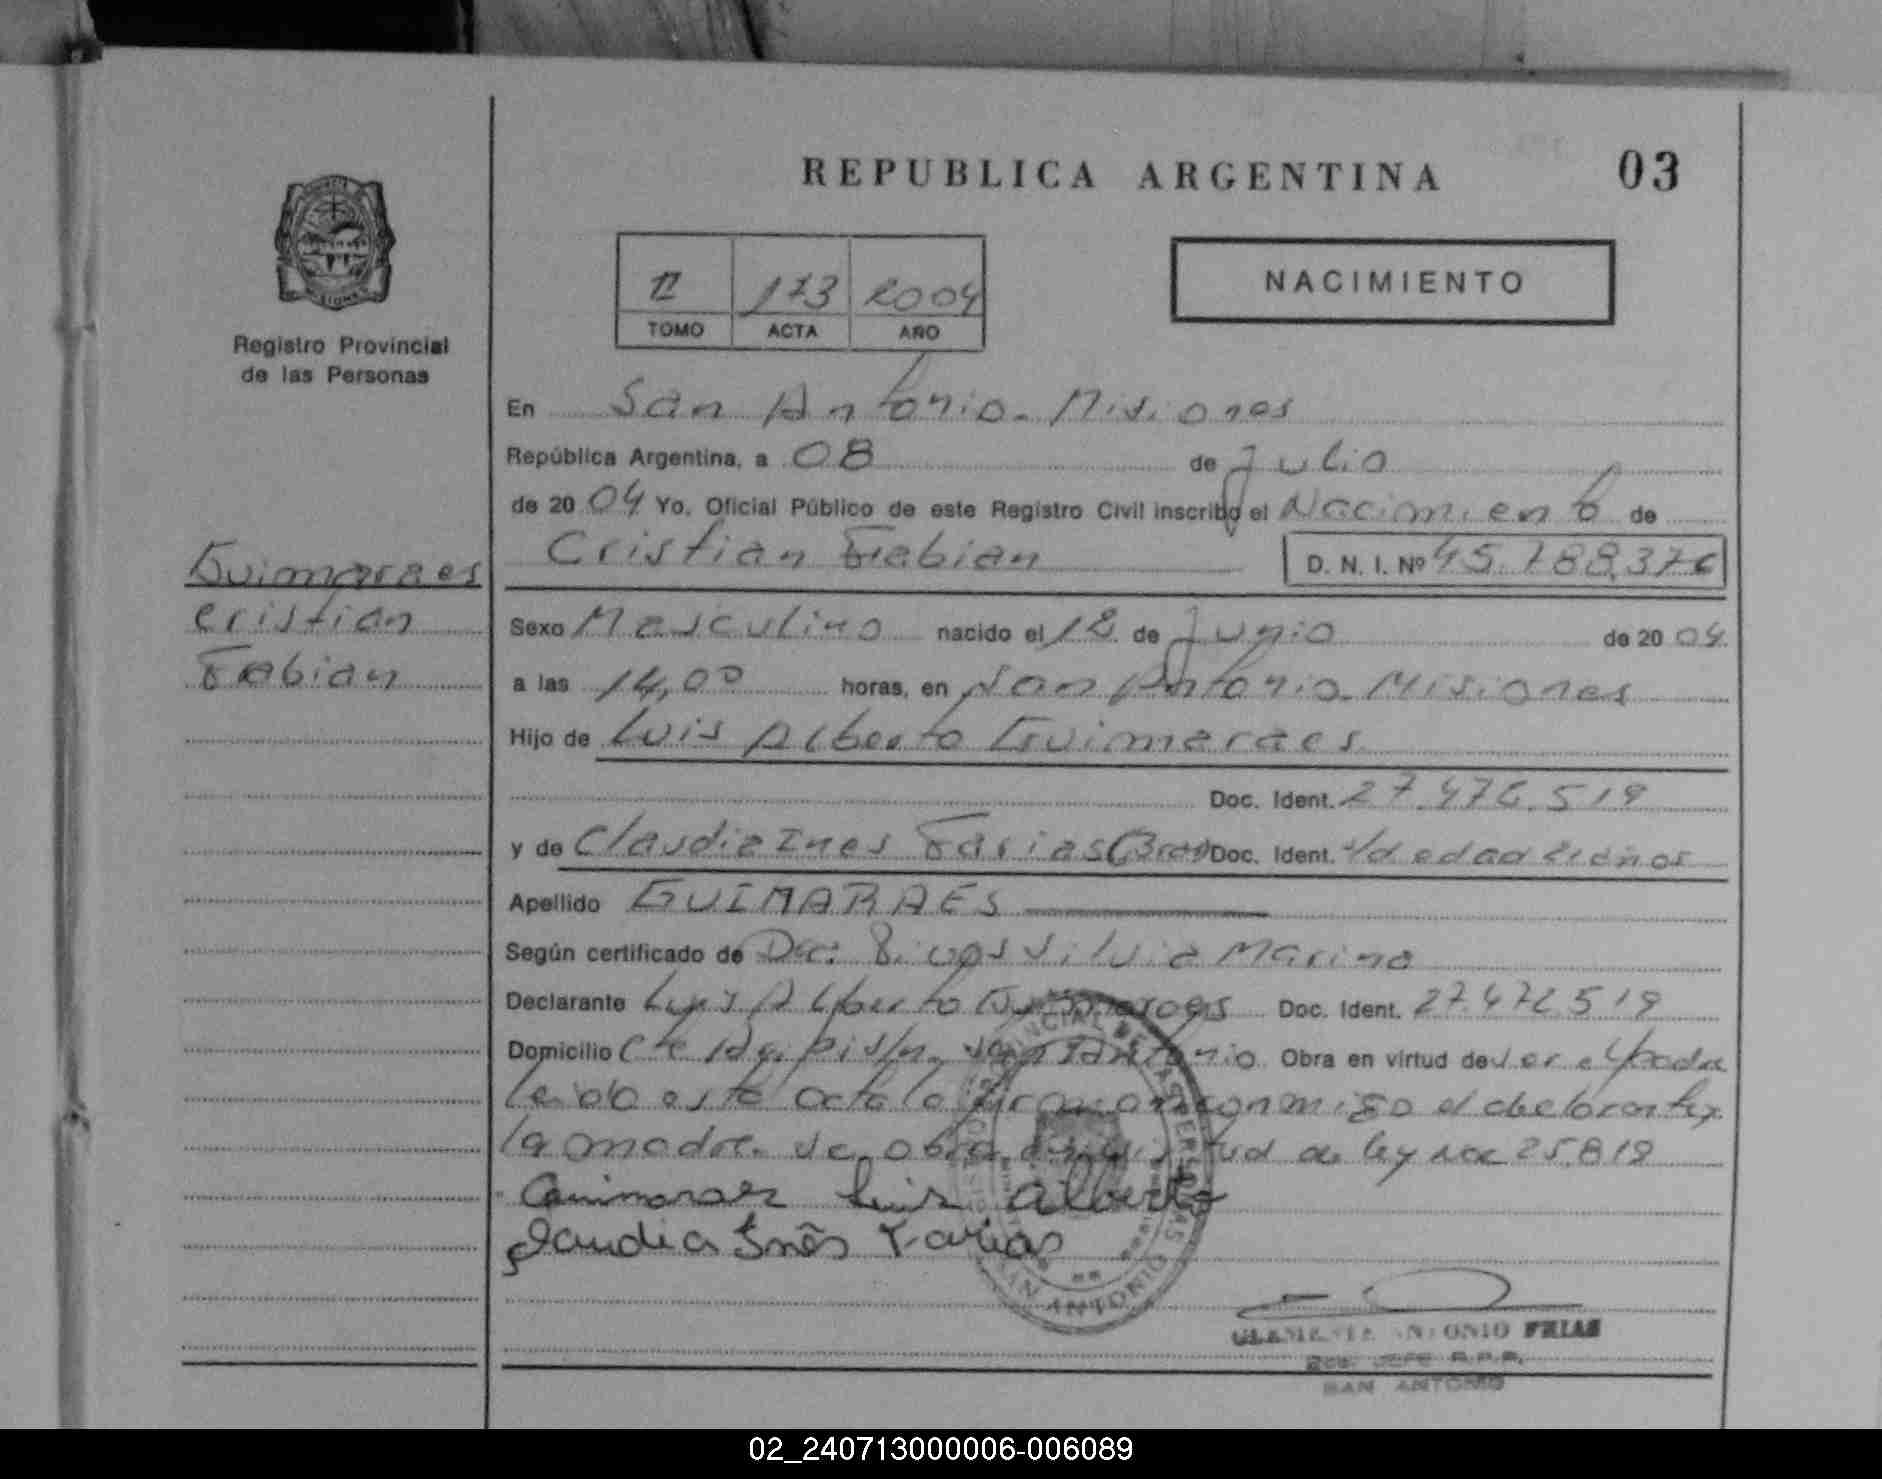 REPUBLICA ARGENTINA 03
Registro Provincial
de las Personas
II 173 2004
TOMO ACTA AÑO
NACIMIENTO
En San Antonio - Misiones
República Argentina, a 08 de Julio
de 20 04 Yo, Oficial Público de este Registro Civil inscribo el Nacimiento de
Cristian Fabian D. N. I. Nº 45.788.376
Guimaraes
Cristian
Fabian
Sexo Masculino nacido el 18 de Junio de 20 04
a las 14,00 horas, en San Antonio - Misiones
Hijo de Luis Alberto Guimaraes
Doc. Ident. 27.476.519
y de Claudia Ines Farias (Bras) Doc. Ident. de edad años
Apellido GUIMARAES
Según certificado de Dra. Silvia Marina
Declarante Luis Alberto Guimaraes Doc. Ident. 27.476.519
Domicilio s/n. San Antonio Obra en virtud de ser el padre
leido este acta la firman conmigo el declarante y
la madre. se obra en virtud de ley Nro 25.819
Guimaraes Luis Alberto
Claudia Inês Farias
SAN ANTONIO
CLEMENTE ANTONIO FRIAS
JEFE R.P.P.
SAN ANTONIO
02_240713000006-006089